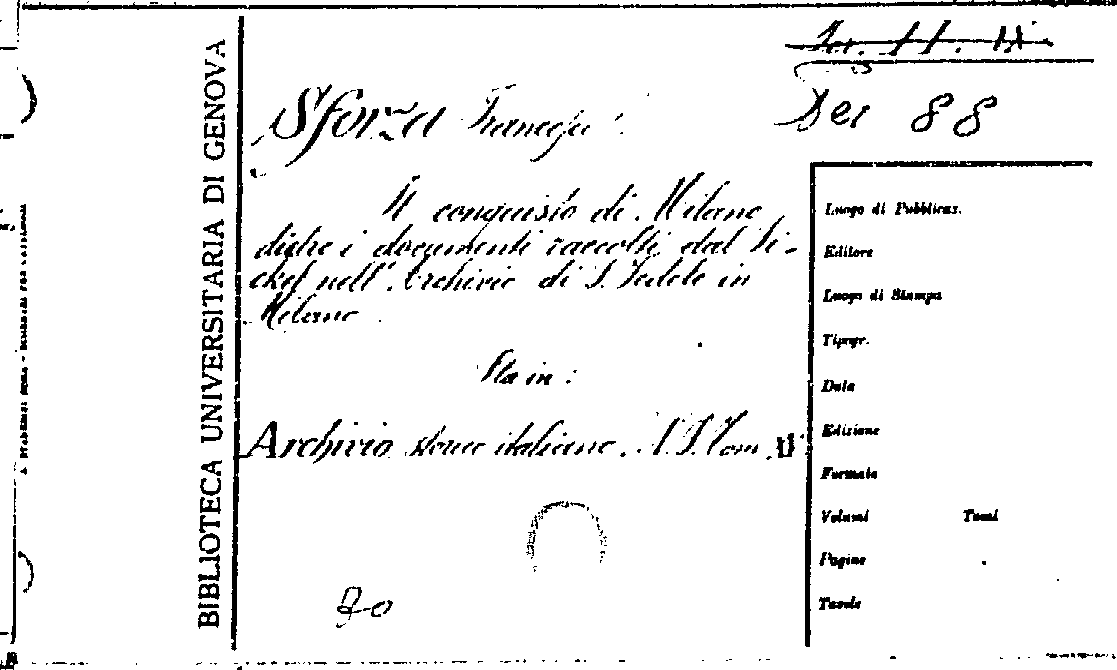 BIBLIOTECA UNIVERSITARIA DI GENOVA
Ser 88
Sforza Francesco
Il conquisto di Milano
dietro i documenti raccolti dal Ti-
nell'Archivio di S. Fedele in
Milano
Sta in:
Archivio storico italiano. Tom. II
Luogo di Pubblicaz.
Editore
Luogo di Stampa
Tipogr.
Data
Edizione
Formato
Volumi Tomi
Pagine
Tavole